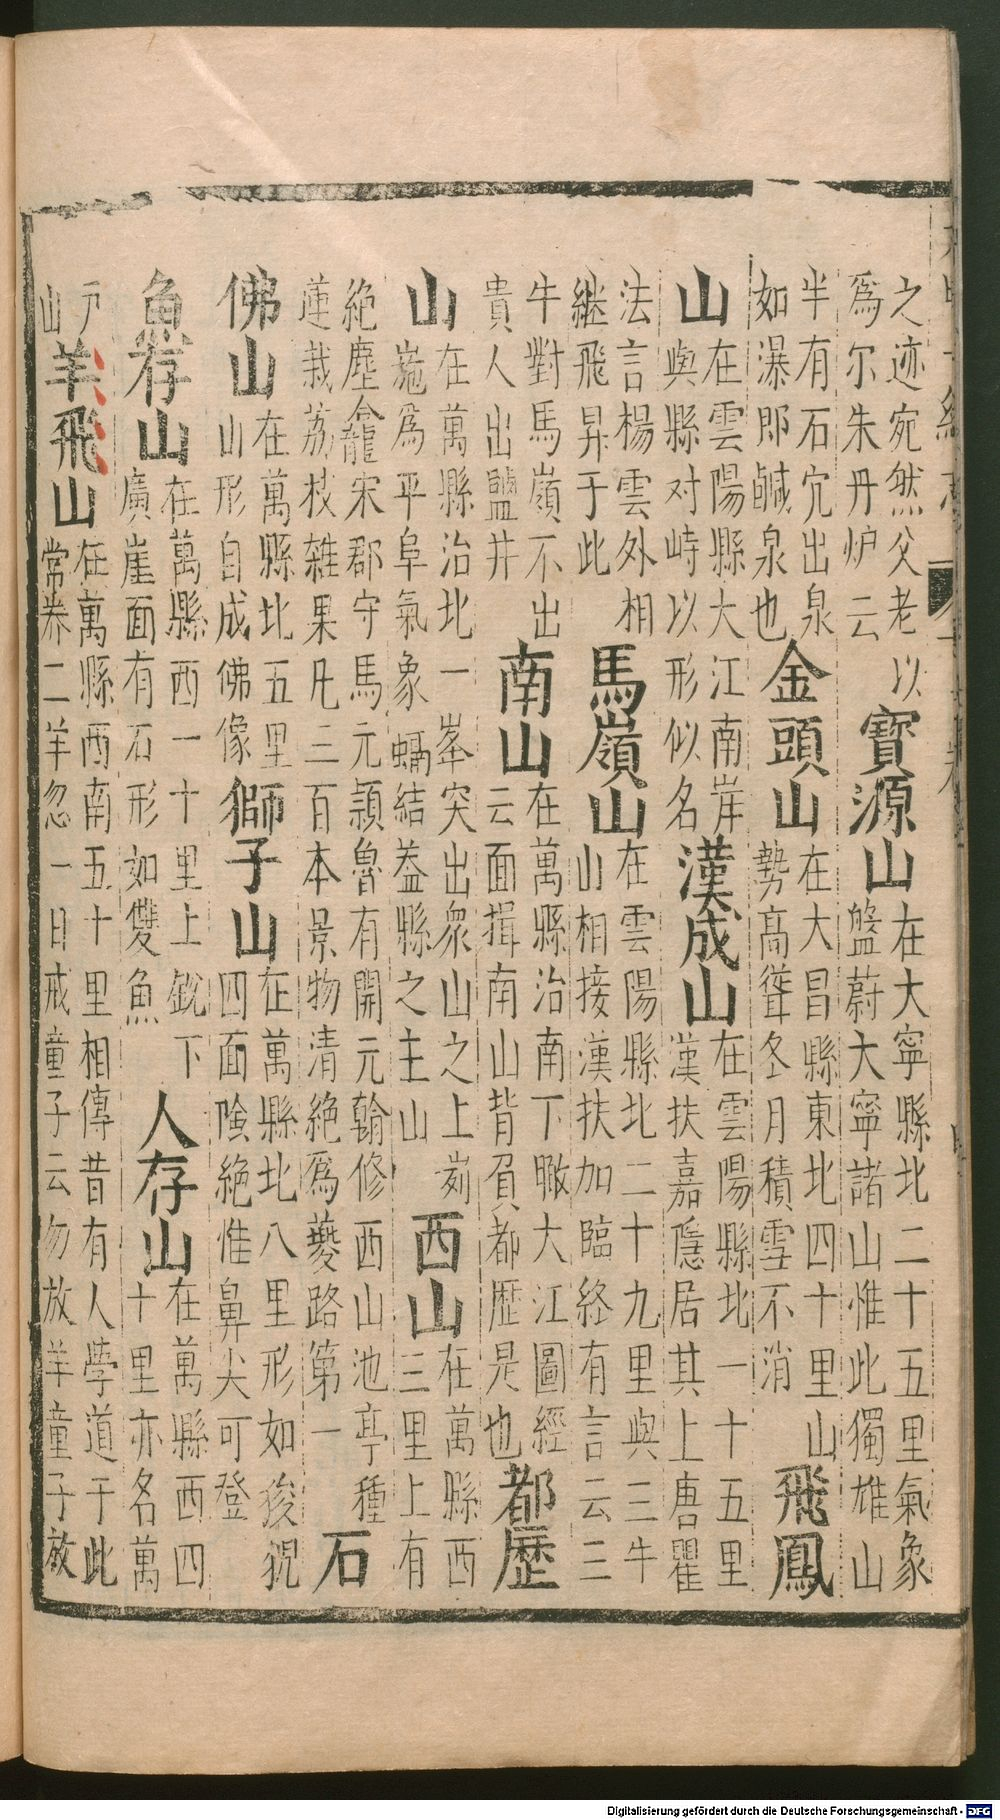 之迹宛然父老以
爲尔朱丹炉云
寳源山
在大寧縣北二十五里氣象
盤蔚大寧諸山惟此獨雄山
半有石穴出泉
如瀑即鹹泉也
金頭山
在大昌縣東北四十里山
勢高聳冬月積雪不消
飛鳳
山
在雲陽縣大江南岸
與縣对峙以形似名
漢成山
在雲陽縣北一十五里
漢扶嘉隱居其上唐瞿
法言楊雲外相
継飛昇于此
馬嶺山
在雲陽縣北二十九里與三牛
山相接漢扶加臨終有言云三
牛對馬嶺不出
貴人出鹽井
南山
在萬縣治南下瞰大江圖經
云面揖南山背負都歷是也
都歷
山
在萬縣治北一峯突出衆山之上峛
崺爲平阜氣象蟠結盖縣之主山
西山
在萬縣西
三里上有
絶塵龕宋郡守馬元頴魯有開元翰修西山池亭種
蓮栽荔枝雜果凡三百本景物清絶爲夔路第一
石
佛山
在萬縣北五里
山形自成佛像
獅子山
在萬縣北八里形如狻猊
四面險絶惟鼻尖可登
魚存山
在萬縣西一十里上銳下
廣崖面有石形如雙魚
人存山
在萬縣西四
十里亦名萬
戸
山
羊飛山
在萬縣西南五十里相傳昔有人學道于此
常豢二羊忽一日戒童子云勿放羊童子放
Digitalisierung gefördert durch die Deutsche Forschungsgemeinschaft - DFG